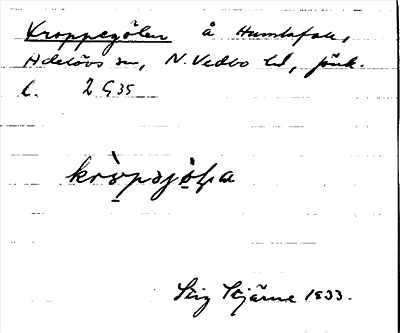 Kroppegölen å Humlafall,
Adelövs sn, N. Vedbo hd, Jönk.
l. 2 G35
kròpəjö̀ḷa
Stig Stjärne 1933.